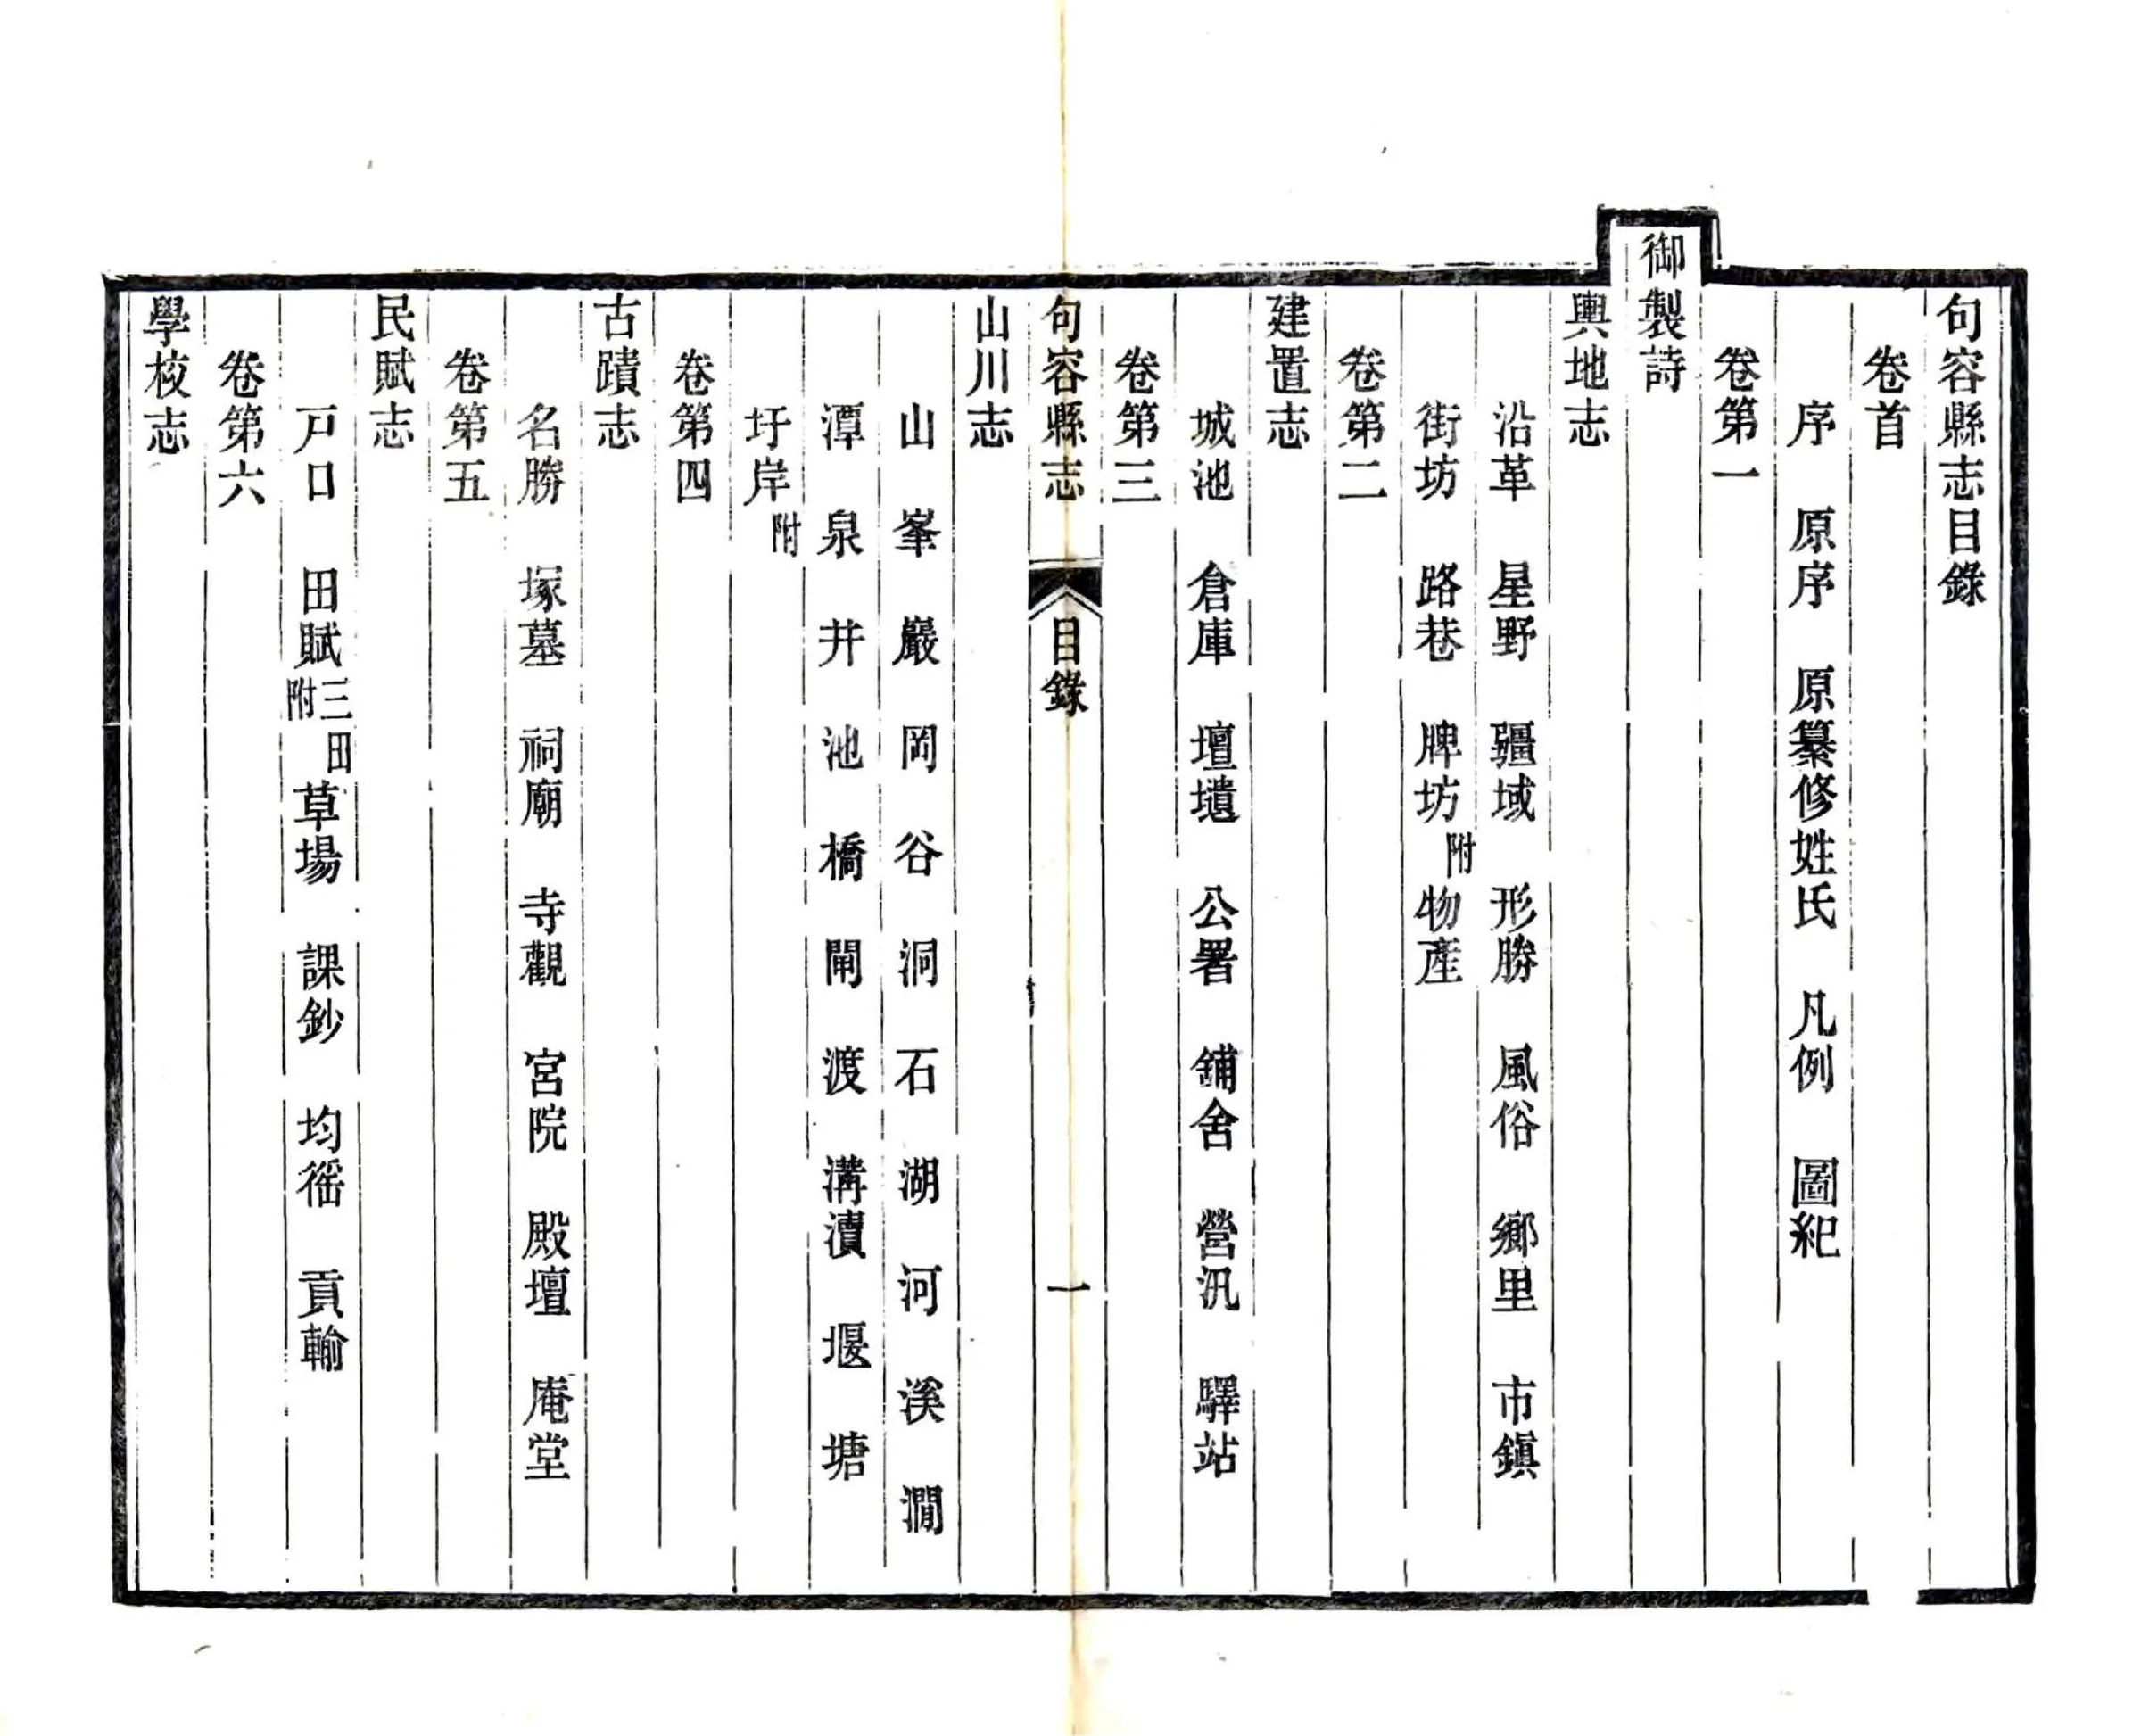 句容縣志目錄
卷首
序 原序 原纂修姓氏 凡例 圖紀
卷第一
御製詩
輿地志
沿革 星野 疆域 形勝 風俗 鄉里 市鎭
街坊 路巷 牌坊附 物產
卷第二
建置志
城池 倉庫 壇壝 公署 鋪舍 營汛 驛站
卷第三
句容縣志 目錄 一
山川志
山 峯 巖 岡 谷 洞 石 湖 河 溪 澗
潭 泉 井 池 橋 閘 渡 溝瀆 堰 塘
圩岸附
卷第四
古蹟志
名勝 塚墓 祠廟 寺觀 宮院 殿壇 庵堂
卷第五
民賦志
戸口 田賦三田附 草場 課鈔 均徭 貢輸
卷第六
學校志